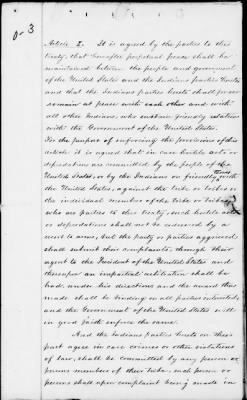 0-3
Article I. It is agreed by the parties to this
treaty, that hereafter perpetual peace shall be
maintained between the people and government
of the United States and the Indians parties hereto
and that the Indians parties hereto shall forever
remain at peace with each other and with
all other Indians, who sustain friendly relations
with the Government of the United States.
For the purpose of enforcing the provisions of this
article it is agreed that in case hostile acts or
depredations are committed by the people of the
United States, or by the Indians on friendly terms with
the United States, against the tribe or tribes or
the individual members of the tribe or tribes
who are parties to this treaty, such hostile acts
or depredations shall not be redressed by a
resort to arms, but the party or parties aggrieved
shall submit their complaints, through their
agent to the President of the United States and
thereupon an impartial arbitration shall be
had, under his direction and the award thus
made shall be binding on all parties interested,
and the Government of the United States will
in good faith enforce the same.
And the Indians parties hereto on their
part agree in case crimes or other violations
of law, shall be committed by any person or
persons members of their tribe, such person or
persons shall upon complaint being made in